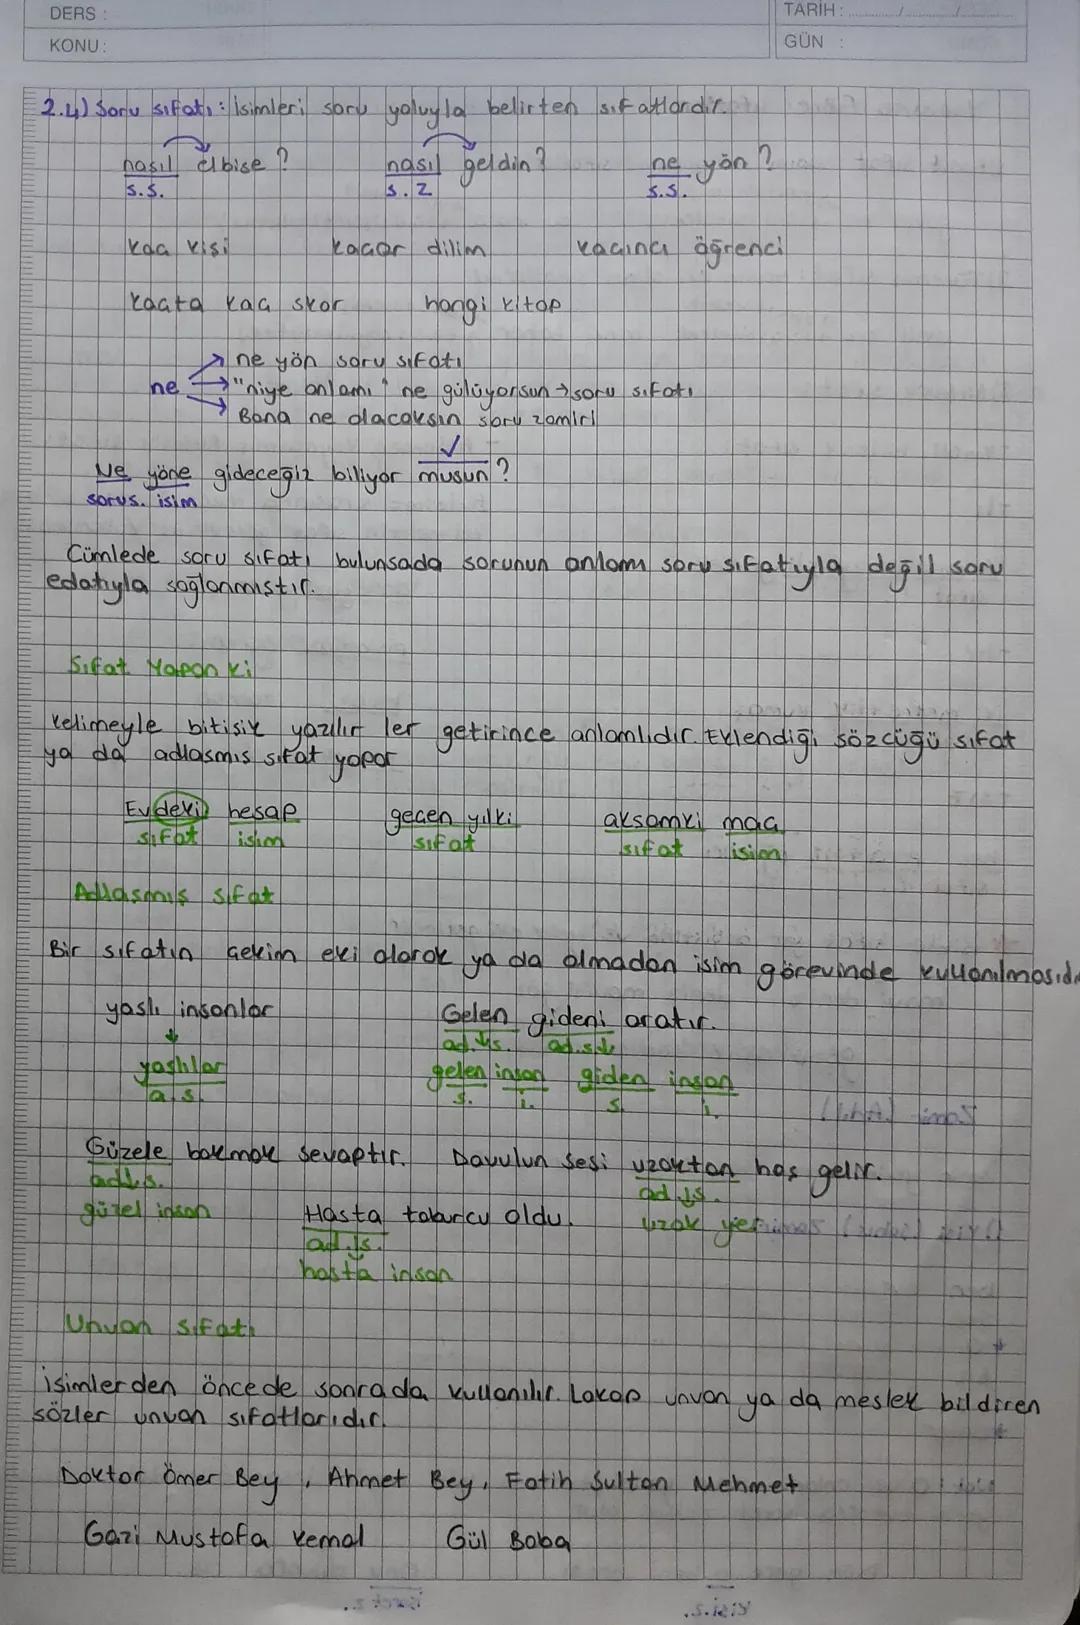 DERS :
TARİH: ......... / ......... / .........
KONU:
GÜN :
2.4) Soru sıfatı: İsimleri soru yoluyla belirten sıfatlardır.
nasıl elbise? nasıl geldin? ne yön?
s.s. s.z s.s.
kaç kişi kaçar dilim kaçıncı öğrenci
kaçta kaç skor hangi kitap
ne yön soru sıfatı
ne "niye anlamı" ne gülüyorsun → soru sıfatı
Bana ne olacaksın soru zamiri
✓
Ne yöne gideceğiz biliyor musun?
sorus. isim
Cümlede soru sıfatı bulunsada sorunun anlamı soru sıfatıyla değil soru
edatıyla sağlanmıştır.
Sıfat Yapan ki
Kelimeyle bitişik yazılır ler getirince anlamlıdır. Eklendiği sözcüğü sıfat
ya da adlaşmış sıfat yapar
Evdeki hesap geçen yılki akşamki maç
sıfat isim sıfat sıfat isim
Adlaşmış sıfat
Bir sıfatın çekim eki alarak ya da almadan isim görevinde kullanılmasıdı
yaşlı insanlar Gelen gideni aratır.
ad.s. ad.s.
yaşlılar gelen insan giden insan
a.s. s. i. s. i.
Güzele bakmak sevaptır. Davulun sesi uzaktan hoş gelir.
ad.s. ad.s.
güzel insan Hasta taburcu oldu. uzak yer
ad.s.
hasta insan
Unvan sıfatı
isimlerden öncede sonrada kullanılır. Lakap unvan ya da meslek bildiren
sözler unvan sıfatlarıdır.
Doktor Ömer Bey, Ahmet Bey, Fatih Sultan Mehmet
Gazi Mustafa Kemal Gül Baba